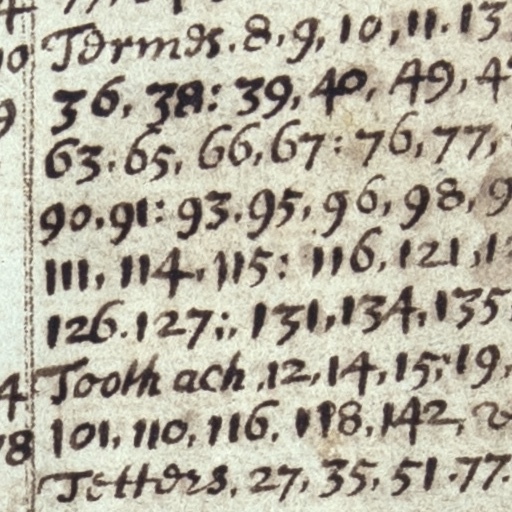 Termes. 8, 9, 10, 11. 13
36, 38: 39, 40, 49, 4
63. 65, 66, 67: 76, 77,
90. 91: 93. 95, 96, 98, 9
111, 114, 115: 116, 121, 12
126. 127;, 131, 134, 135
Tooth ach, 12, 14, 15, 19,
101, 110, 116, 118, 142,
Tetters, 27, 35, 51. 77.